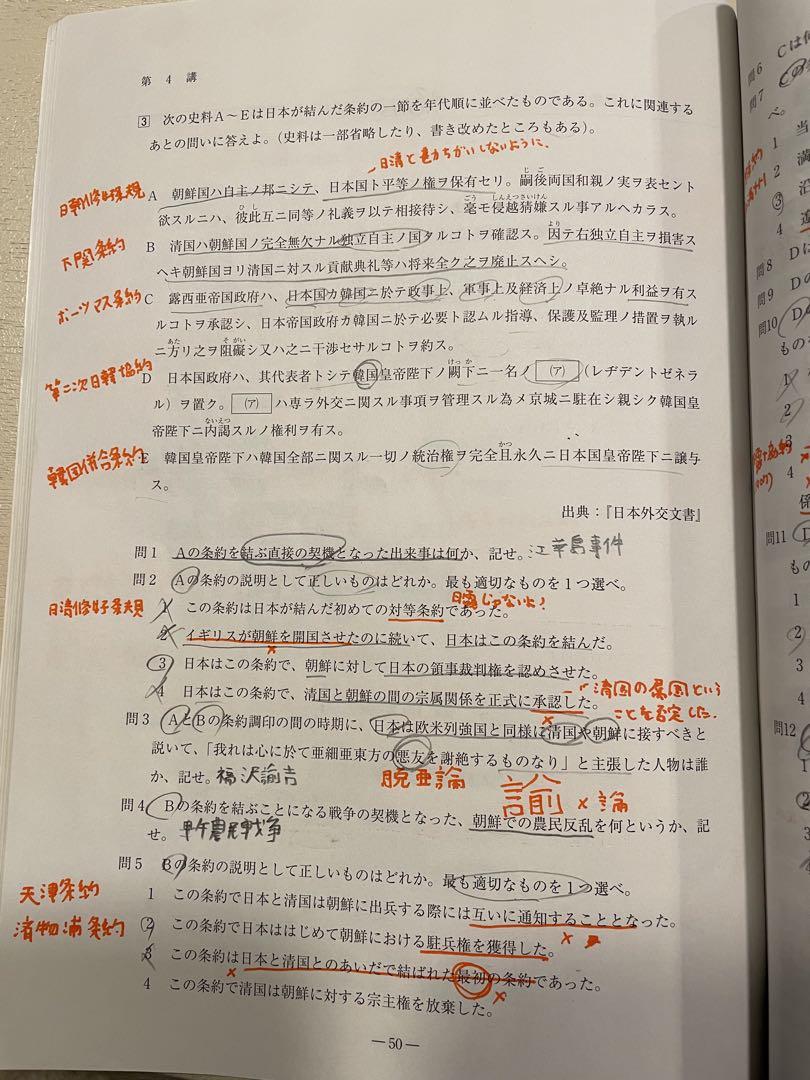 第 4 講
3 次の史料A～Eは日本が結んだ条約の一節を年代順に並べたものである。これに関連する
あとの問いに答えよ。(史料は一部省略したり、書き改めたところもある)。
日清と もちがいしないように.
日朝修好条規
A 朝鮮国ハ自主ノ邦ニシテ、日本国ト平等ノ権ヲ保有セリ。嗣後両国和親ノ実ヲ表セント
じご
欲スルニハ、彼此互ニ同等ノ礼義ヲ以テ相接待シ、毫モ侵越猜嫌スル事アルヘカラス。
ひし ごう しんえつさいけん
下関条約
B 清国ハ朝鮮国ノ完全無欠ナル独立自主ノ国タルコトヲ確認ス。因テ右独立自主ヲ損害ス
より
ヘキ朝鮮国ヨリ清国ニ対スル貢献典礼等ハ将来全ク之ヲ廃止スヘシ。
ポーツマス条約
C 露西亜帝国政府ハ、日本国カ韓国ニ於テ政事上、軍事上及経済上ノ卓絶ナル利益ヲ有ス
ルコトヲ承認シ、日本帝国政府カ韓国ニ於テ必要ト認ムル指導、保護及監理ノ措置ヲ執ル
ニ方リ之ヲ阻礙シ又ハ之ニ干渉セサルコトヲ約ス。
あた そがい
第二次日韓協約
D 日本国政府ハ、其代表者トシテ韓国皇帝陛下ノ闕下ニ一名ノ (ア) (レヂデントゼネラ
けっか
ル) ヲ置ク。 (ア) ハ専ラ外交ニ関スル事項ヲ管理スル為メ京城ニ駐在シ親シク韓国皇
帝陛下ニ内謁スルノ権利ヲ有ス。
ないえつ
韓国併合条約
E 韓国皇帝陛下ハ韓国全部ニ関スル一切ノ統治権ヲ完全且永久ニ日本国皇帝陛下ニ譲与
かつ
ス。
出典:『日本外交文書』
問1 Aの条約を結ぶ直接の契機となった出来事は何か、記せ。江華島事件
問2 Aの条約の説明として正しいものはどれか。最も適切なものを1つ選べ。
日清修好条規
1 この条約は日本が結んだ初めての対等条約であった。
じゃないよ!
2 イギリスが朝鮮を開国させたのに続いて、日本はこの条約を結んだ。
×
3 日本はこの条約で、朝鮮に対して日本の領事裁判権を認めさせた。
4 日本はこの条約で、清国と朝鮮の間の宗属関係を正式に承認した。
×
清国の属国という
ことを否定した.
問3 AとBの条約調印の間の時期に、日本は欧米列強国と同様に清国や朝鮮に接すべきと
説いて、「我れは心に於て亜細亜東方の悪友を謝絶するものなり」と主張した人物は誰
か、記せ。福沢諭吉
脱亜論
諭 × 論
問4 Bの条約を結ぶことになる戦争の契機となった、朝鮮での農民反乱を何というか、記
せ。甲午農民戦争
問5 Bの条約の説明として正しいものはどれか。最も適切なものを1つ選べ。
天津条約
1 この条約で日本と清国は朝鮮に出兵する際には互いに通知することとなった。
×
済物浦条約
2 この条約で日本ははじめて朝鮮における駐兵権を獲得した。
3 この条約は日本と清国とのあいだで結ばれた最初の条約であった。
× ×
4 この条約で清国は朝鮮に対する宗主権を放棄した。
—50—
問6 Cは何
問7
べ。
1 当
2 満
3 沿
4
問8 Dに
問9 Dの
問10
ものを
1
2
3
4
問11
もの
1
2
3
4
問12
1
2
3